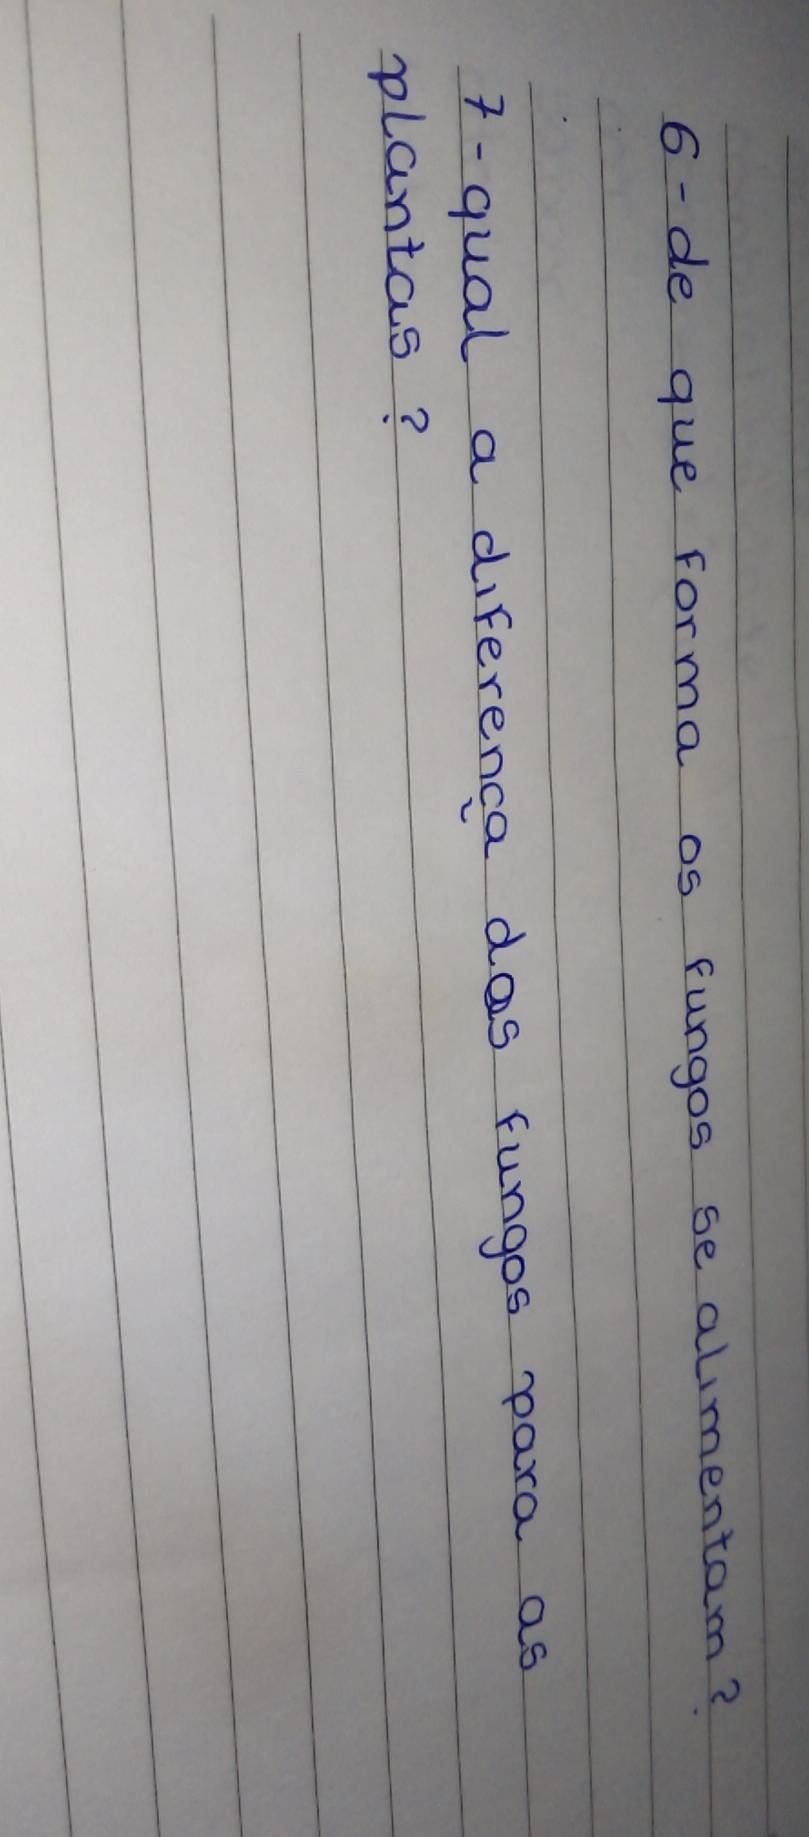 6-de que forma os fungos se alimentam?
7-qual a diferença das fungos para as
plantas?